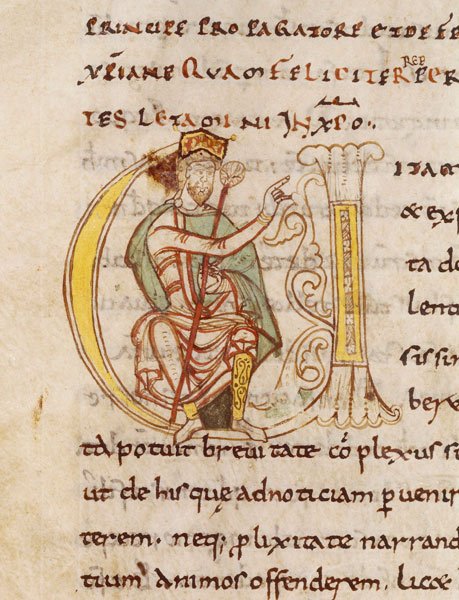 PRINCIPE PROPAGATORE ET DEFE
XPIANE QUAM FELICITER PER
TES LETAMINI IN XPO.
ITAM
& exp
ta do
lenti
sissi
bere
ta potuit brevitate cō plexus s
ut de his quę ad noticiam ꝑvenir
terem. neq; ꝓlixitate narrand
tium animos offenderem. licæ